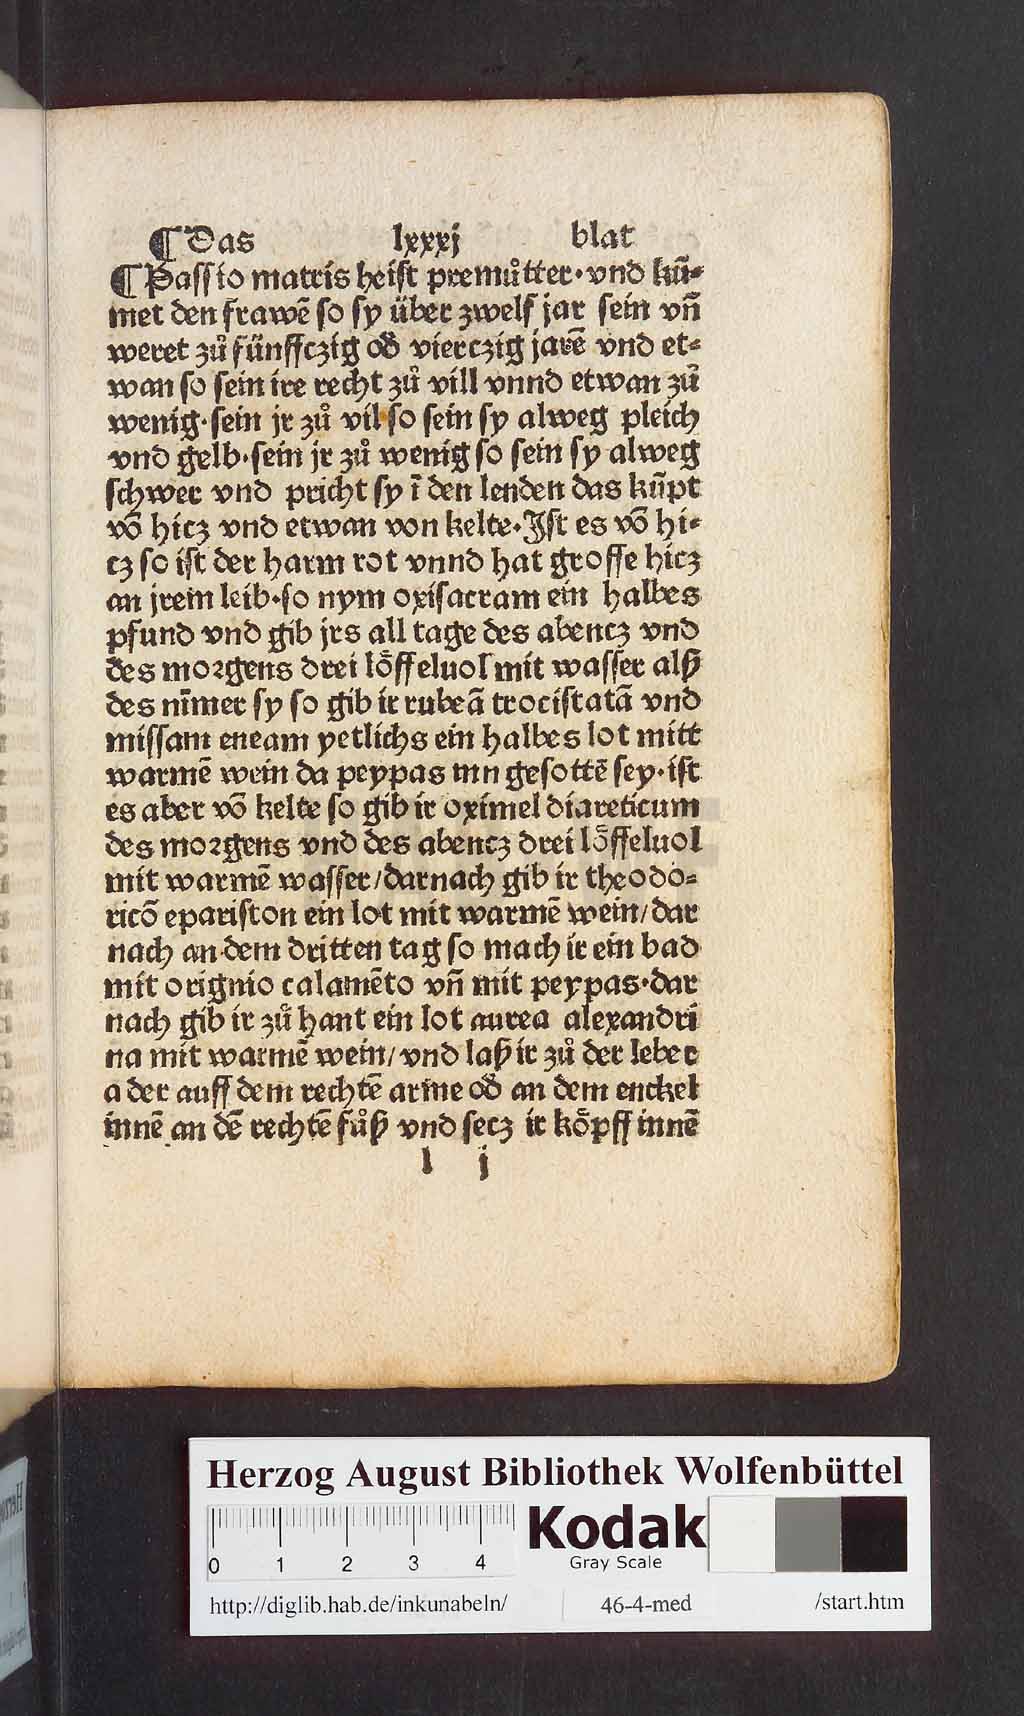 ¶ Das lxxxj blat
¶ Passio matris heist premuͦtter · vnd kū⸗
met den frawē so sy über zwelf jar sein vn̄
weret zuͦ fünffczig od̕ vierczig jarē vnd et⸗
wan so sein ire recht zuͦ vill vnnd etwan zuͦ
wenig · sein jr zuͦ vil so sein sy alweg pleich
vnd gelb · sein jr zuͦ wenig so sein sy alweg
schwer vnd pricht sy ī den lenden das kūpt
vō hicz vnd etwan von kelte · Ist es vō hi⸗
cz so ist der harm rot vnnd hat grosse hicz
an jrem leib · so nym oxisacram ein halbes
pfund vnd gib jrs all tage des abencz vnd
des morgens drei löffeluol mit wasser alß
des nīmer sy so gib ir rubeā trocistatā vnd
missam eneam yetlichs ein halbes lot mitt
warmē wein da peypas inn gesottē sey · ist
es aber vō kelte so gib ir oximel diareticum
des morgens vnd des abencz drei löffeluol
mit warmē wasser / darnach gib ir theodo⸗
ricō epariston ein lot mit warmē wein / dar
nach an dem dritten tag so mach ir ein bad
mit orignio calamēto vn̄ mit peypas · dar
nach gib ir zuͦ hant ein lot aurea alexandri
na mit warmē wein / vnd laß ir zuͦ der leber
a der auff dem rechtē arme od̕ an dem enckel
innē an dē rechtē fuͦß vnd secz ir köpff innē
l j
Herzog August Bibliothek Wolfenbüttel
0 1 2 3 4
Kodak
Gray Scale
http://diglib.hab.de/inkunabeln/ 46-4-med /start.htm